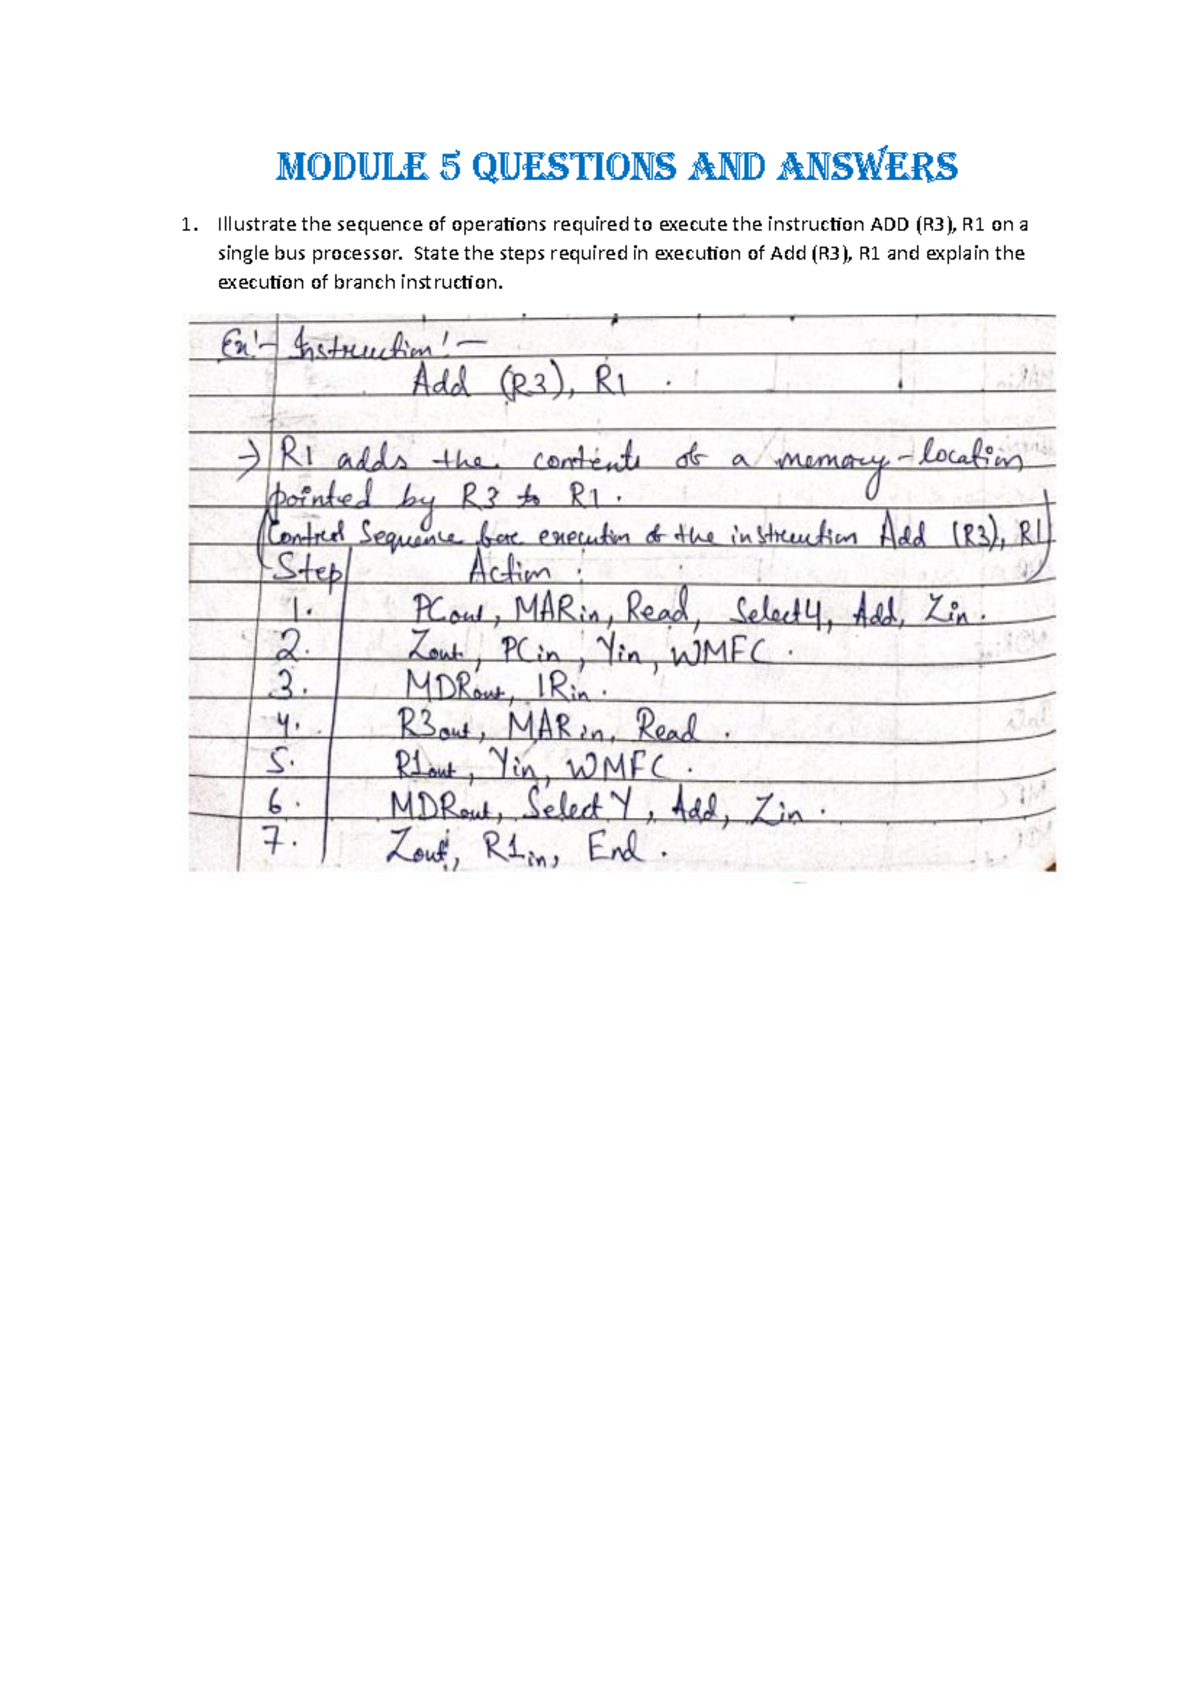 MODULE 5 QUESTIONS AND ANSWERS
1. Illustrate the sequence of operations required to execute the instruction ADD (R3), R1 on a
single bus processor. State the steps required in execution of Add (R3), R1 and explain the
execution of branch instruction.
Ex:- Instruction:-
Add (R3), R1.
→ R1 adds the contents of a memory-location
pointed by R3 to R1.
(Control Sequence for execution of the instruction Add (R3), R1)
Step Action:
1. PCout, MARin, Read, Select4, Add, Zin.
2. Zout, PCin, Yin, WMFC.
3. MDRout, IRin.
4. R3out, MARin, Read.
5. R1out, Yin, WMFC.
6. MDRout, Select Y, Add, Zin.
7. Zout, R1in, End.